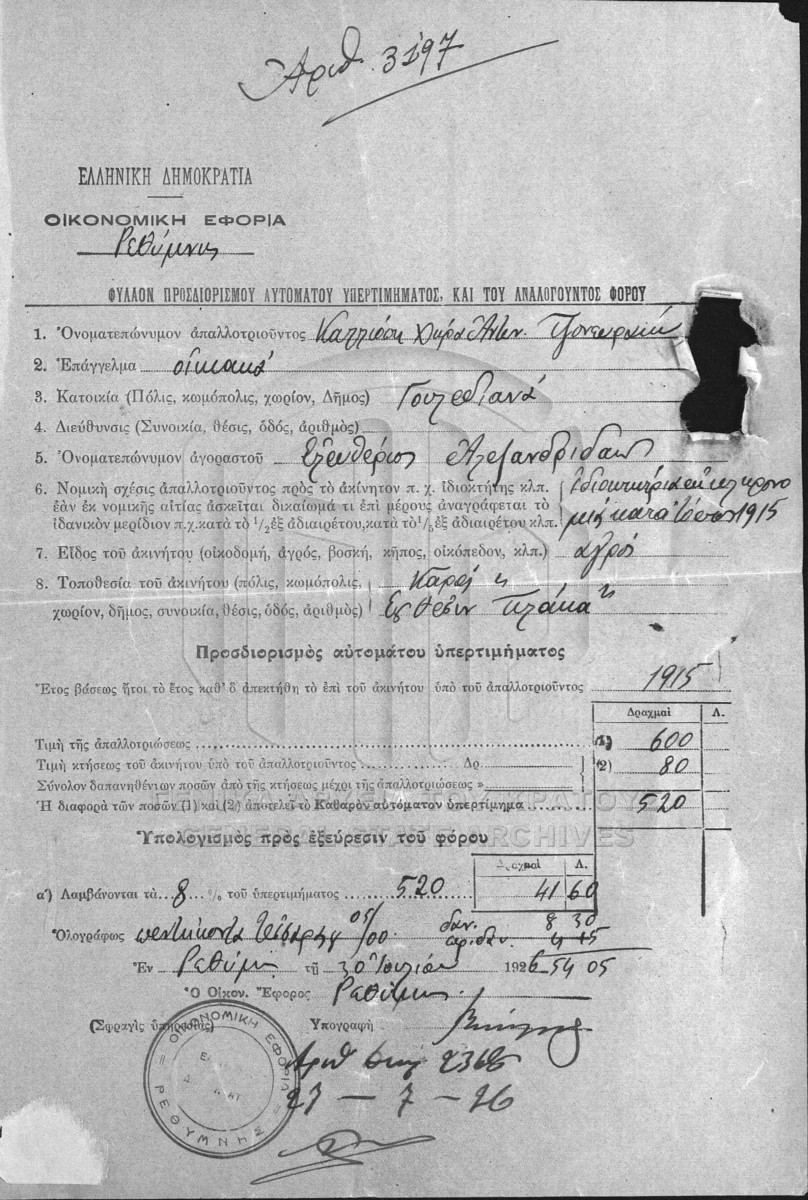 Αριθ. 3197
ΕΛΛΗΝΙΚΗ ΔΗΜΟΚΡΑΤΙΑ
ΟΙΚΟΝΟΜΙΚΗ ΕΦΟΡΙΑ
Ρεθύμνης
ΦΥΛΛΟΝ ΠΡΟΣΔΙΟΡΙΣΜΟΥ ΑΥΤΟΜΑΤΟΥ ΥΠΕΡΤΙΜΗΜΑΤΟΣ, ΚΑΙ ΤΟΥ ΑΝΑΛΟΓΟΥΝΤΟΣ ΦΟΡΟΥ
1. Ὀνοματεπώνυμον ἀπαλλοτριοῦντος Καλλιόπη χήρα Αντων.
2. Ἐπάγγελμα οἰκιακά
3. Κατοικία (Πόλις, κωμόπολις, χωρίον, Δῆμος) Γουλεδιανά
4. Διεύθυνσις (Συνοικία, θέσις, ὁδός, ἀριθμὸς)
5. Ὀνοματεπώνυμον ἀγοραστοῦ Ελευθέριος Αλεξανδρίδης
6. Νομικὴ σχέσις ἀπαλλοτριοῦντος πρὸς τὸ ἀκίνητον π. χ. ἰδιοκτήτης κλπ.
ἐὰν ἐκ νομικῆς αἰτίας ἀσκεῖται δικαίωμά τι ἐπὶ μέρους ἀναγράφεται τὸ
ἰδανικὸν μερίδιον π.χ. κατὰ τὸ 1/2 ἐξ ἀδιαιρέτου, κατὰ τὸ 1/5 ἐξ ἀδιαιρέτου κλπ.
κατά τὸ 1915
7. Εἶδος τοῦ ἀκινήτου (οἰκοδομή, ἀγρός, βοσκή, κῆπος, οἰκόπεδον, κλπ.) αγροί
8. Τοποθεσία τοῦ ἀκινήτου (πόλις, κωμόπολις,
χωρίον, δῆμος, συνοικία, θέσις, ὁδός, ἀριθμὸς) θέσιν Πλάκα
Προσδιορισμὸς αὐτομάτου ὑπερτιμήματος
Ἔτος βάσεως ἤτοι τὸ ἔτος καθ' ὃ ἀπεκτήθη τὸ ἐπὶ τοῦ ἀκινήτου ὑπὸ τοῦ ἀπαλλοτριοῦντος 1915
Δραχμαὶ Λ.
Τιμὴ τῆς ἀπαλλοτριώσεως (1) 600
Τιμὴ κτήσεως τοῦ ἀκινήτου ὑπὸ τοῦ ἀπαλλοτριοῦντος Δρ. (2) 80
Σύνολον δαπανηθέντων ποσῶν ἀπὸ τῆς κτήσεως μέχρι τῆς ἀπαλλοτριώσεως »
Ἡ διαφορὰ τῶν ποσῶν (1) καὶ (2) ἀποτελεῖ τὸ Καθαρὸν αὐτόματον ὑπερτίμημα 520
ΓΕΝΙΚΑ ΑΡΧΕΙΑ ΤΟΥ ΚΡΑΤΟΥΣ
GENERAL STATE ARCHIVES
Ὑπολογισμὸς πρὸς ἐξεύρεσιν τοῦ φόρου
Δραχμαὶ Λ.
α') Λαμβάνονται τὰ 8 % τοῦ ὑπερτιμήματος 520 41 60
δαν. 8 30
Ὁλογράφως πεντήκοντα τέσσαρας 05/00 4 15
Ἐν Ρεθύμνῃ τῇ 30 Ἰουλίου 1926 54 05
Ὁ Οἰκον. Ἔφορος Ρεθύμνης
(Σφραγὶς ὑπηρεσίας) Ὑπογραφὴ
ΟΙΚΟΝΟΜΙΚΗ ΕΦΟΡΙΑ
ΡΕΘΥΜΝΗΣ
27 – 7 – 26